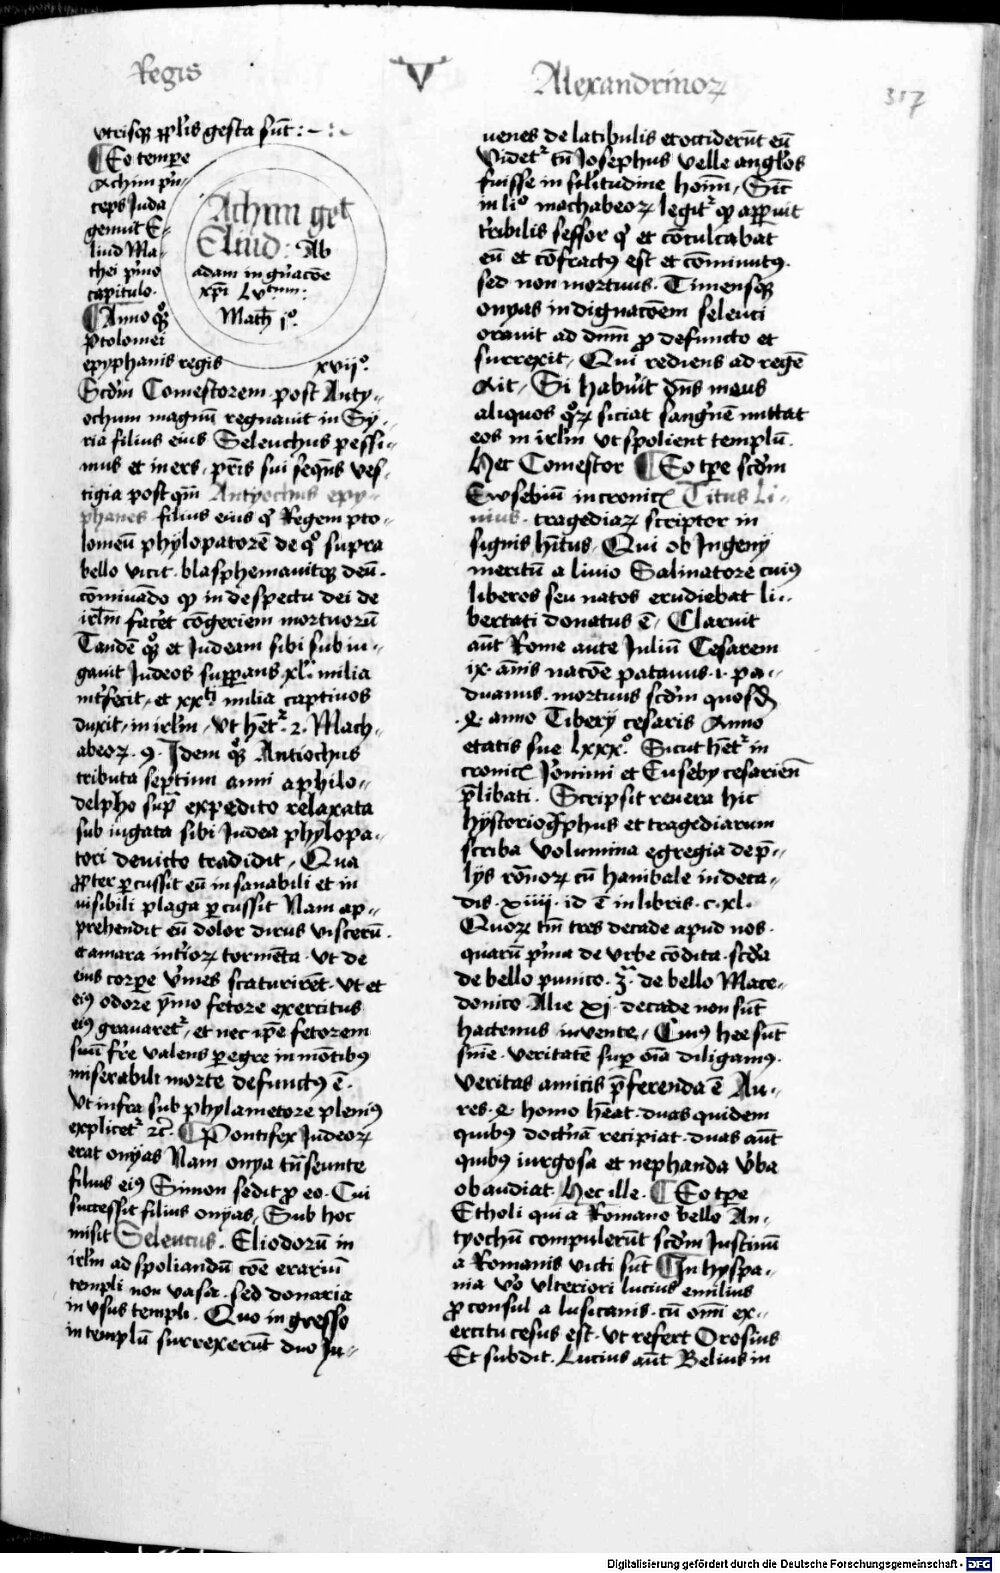 Regis
V
Alexandrinoꝝ
317
vtrisqꝫ ꝓp̄lis gesta sūt :~ :
¶ Eo tempe
Achim p̄n
ceps Juda
genuit E-
liud Ma-
thei pͥmo
capitulo.
¶ Anno qͦꝫ
ptolomei
epyphanis regis xvijͦ.
Achim geᵗ
Eliud: Ab
adam in gn̄acōe
xp̄i Lvᵗᵘᵐ:
Math̄ jͦ.
Scd̄m Comestorem post Anty-
ochum magnū regnauit in Sy-
ria filius eius Seleuchus pessi-
mus et iners, pr̄is sui seqn̄s ves-
tigia post qm̄ Antyochus epy-
phanes filius eius qͥ Regem pto-
lomeū phylopatorē de qͦ supra
bello vicit. blasphemauitqꝫ deū.
cōminādo ꝙ in despectu dei de
irl̄m facēt cōgeriem mortuorū
Tandē qͦꝫ et Judeam sibi subiu-
gauit Judeos suppans xl. milia
int̄fecit, et xxᵗⁱ milia captiuos
duxit, in irl̄m, vt hēt͛ 2. Mach-
abeoꝝ. 9. Idem qͦꝫ Antiochus
tributa septim anni a philo-
delpho sup̄ expedito relaxata
subiugata sibi Judea phylopa-
tori deuicto tradidit, Qua
ꝓpter ꝑcussit eū insanabili et in
uisibili plaga ꝑcussit Nam ap-
prehendit eū dolor dirus visceꝝ.
et amara int̄ioꝝ tormēta. vt de
eius corpe v̄mes scaturirēt. vt et
eiꝰ odore ymo fetore exercitus
eiꝰ grauaret͛, et nec ip̄e fetorem
suū fr̄e valens ꝑegre in mōtibꝰ
miserabili morte defunctꝰ ē.
Vt infra sub phylametore pleniꝰ
explicet͛ ꝛc̄. ¶ Pontifex Judeoꝝ
erat onyas Nam onya
filius eiꝰ Simon sedit ꝓ eo. Cui
successit filius onyas, Sub hoc
misit Seleucus. Eliodorū in
irl̄m ad spoliandū cōe erariū
templi non vasa. sed donaria
in vsus templi. Quo ingresso
in templū surrexerūt duo Ju-
uenes de latibulis et occiderūt eū
Videt͛ tn̄ Josephus velle angl̄os
fuisse in sil̄itudine hoīm, Sic̄
in liͦ machabeoꝝ legit͛ ꝙ appuit
t̄ribilis sessor qͥ et cōculcabat
eū et cōfractꝰ est et cōminutꝰ.
sed non mortuus. Timensqꝫ
onyas indignacōem seleuci
orauit ad dn̄m ꝓ defuncto et
surrexit, Qui rediens ad regē
Ait, Si habuīt dn̄s meus
aliquos qͦꝝ siciat sangn̄ē mittat
eos in irl̄m vt spolient templū.
Hec Comestor ¶ Eo tꝑe scd̄m
Ewsebiū in cronicꝭ Titus Li-
uius. tragediaꝝ scriptor in
signis h̄itus, Qui ob Ingenij
meritū a liuio Salinatore cuiꝰ
liberos seu natos erudiebat li-
bertati donatus ē, Claruit
aūt Rome ante Juliū Cesarem
ix. annis nacōe patauus. i. pa-
duanus. mortuus scd̄m quosd̄
.4. anno Tiberij cesaris Anno
etatis sue lxxxͦ. Sicut hēt͛ in
cronicꝭ Jeronimi et Eusebij cesarien̄
p̄libati. Scripsit reuera hic
hystoriogͣphus et tragediarum
scriba volumina egregia de p̄-
lijs roͣnoꝝ cū hanibale in deca-
dis. xiiij. id ē in libris. c. xl.
Quoꝝ tn̄ tres decade apud nos.
quarū pͥma de vrbe cōdita. scd̄a
de bello punico. 3ͣ. de bello Mace-
donico Alie xj. decade non sūt
hactenus invente, Cuiꝰ hee sūt
sn̄ie. veritatē sup̄ oīa diligamꝰ.
Veritas amicis p̄ferenda ē Au-
res. 4. homo hēat. duas quidem
quibꝰ doct̄nā recipiat. duas aūt
quibꝰ iurgosa et nephanda v̄ba
obaudiat. Hec ille. ¶ Eo tꝑe
Etholi quia Romano bello An-
tyochū compulerūt scd̄m Justinū
a Romanis victi sūt ¶ In hyspa-
nia v̄o vlteriori lucius emilius
ꝓconsul a lusitanis. cū om̄i ex-
ercitu cesus est. vt refert Orosius
Et subdit. Lucius aūt Belius in
Digitalisierung gefördert durch die Deutsche Forschungsgemeinschaft - DFG